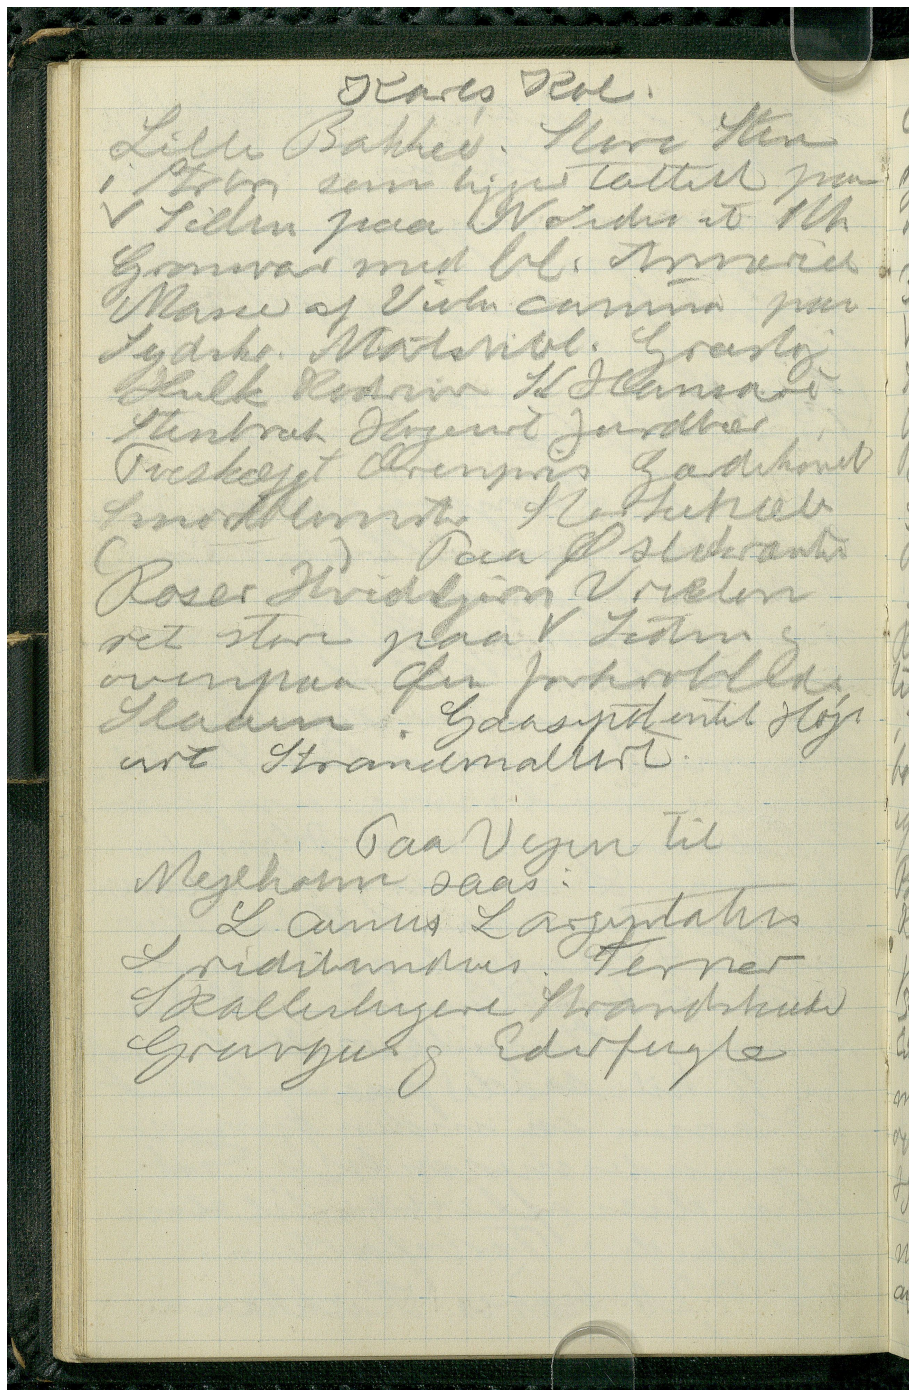 Karls Kol.
Lille Bakkeø. Store Sten
i Strbr. som ligner tættest paa
V Siden paa N Siden et lille
Grønsvær med bl. Armeria
Masse af Viola canina paa
Sydsk. Mælkebl. Græsløg
Hulk Rødknæ
Stenbræk Høgeurt Jordbær
Tveskægt Ærenpris Gærdekørvel
Smørblomster
( ) Paa Ø Skrænt
Roser Hvidtjørn Vrietorn
ret store paa V Siden &
ovenpaa Øen forkrøblede
Slaaen. Gaasepotentil Høge
urt Strandmalurt.
Paa Vejen til
Mejlholm saas:
L canus L argentatus
L ridibundus. Terner
Skalleslugere Strandskade
Gravgæs & Ederfugle